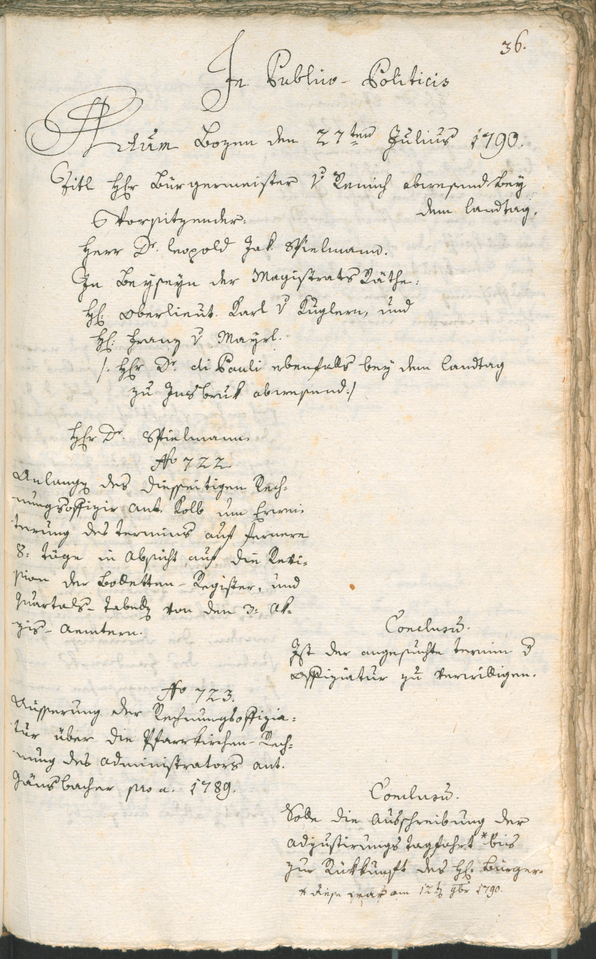 36.
In Publico-Politicis
Actum Bozen den 27ten Julius 1790.
Titl Hr Bürgermeister v Remich abwesend bey
dem Landtag.
Vorsitzender:
Herr Dr. Leopold Jak Spielmann.
In Beyseyn der Magistrats Räthe:
H: Oberlieut. Karl v Küglern, und
H: Franz v Mayrl.
/: Hr Dr. di Pauli ebenfalls bey dem Landtag
zu Insbruk abwesend :/
Hr Dr. Spielmann.
No 722
Anlangen des diesseitigen Rech-
nungsoffizir Ant. Kolb um Erwei-
terung des Termins auf fernere
8: Täge in Absicht auf die Revi-
sion der Bolletten-Register, und
Quartals-Tabelln von den 3: Ak-
zis-Aemtern.
Conclusu.
Ist der angesuchte Termin d
Offiziatur zu verwilligen.
No 723.
Äusserung der Rechnungsoffizia-
tur über die Pfarrkirchen-Rech-
nung des Administrators Ant.
Gänsbacher pro a. 1789.
Conclusu.
Solle die Ausschreibung der
Adjustirungs Tagfahrt * bis
zur Rükkunft des H: Bürger-
* diese war am 12t 9br 1790.